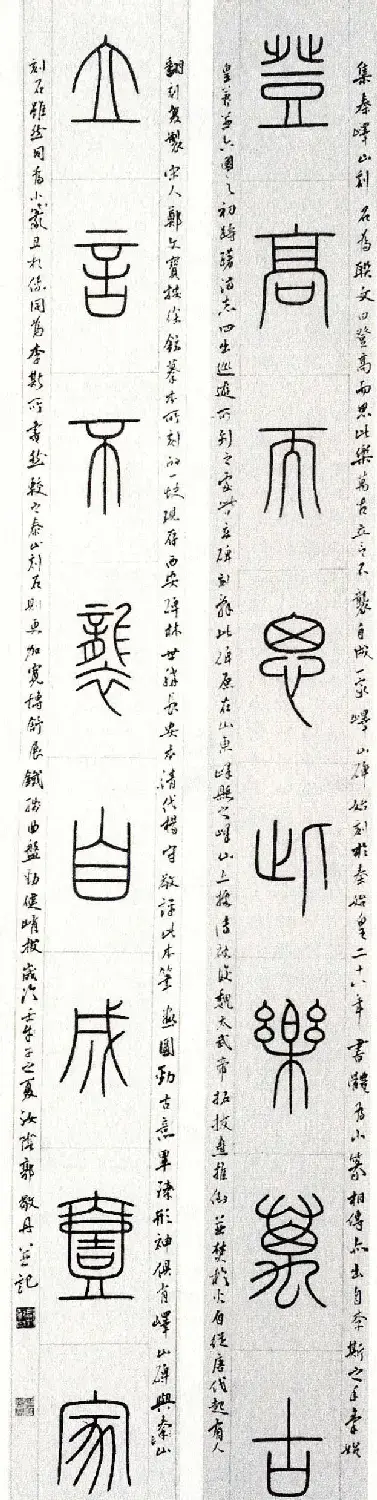 集秦嶧山刻石為聯文曰登高而思此樂萬古立言不襲自成一家嶧山碑始刻於秦始皇二十八年書體為小篆相傳亦出自李斯之手秦始
登高而思此樂萬古
皇兼并六國之初躊躇滿志四出巡遊所到之處皆立碑刻辭此碑原在山東嶧縣之嶧山上據傳被後魏太武帝拓拔燾推倒並焚於火自從唐代起有人
翻刻複製宋人鄭文寶據徐鉉摹本所刻的一塊現存西安碑林世稱長安本清代楊守敬評此本筆畫圓勁古意畢臻形神俱有嶧山碑與泰山
立言不襲自成壹家
刻石雖然同為小篆且相傳同為李斯所書然較之泰山刻石則更加寬博舒展鐵線曲盤勁健峭拔歲次壬午之夏汝陰郭敬丹並記